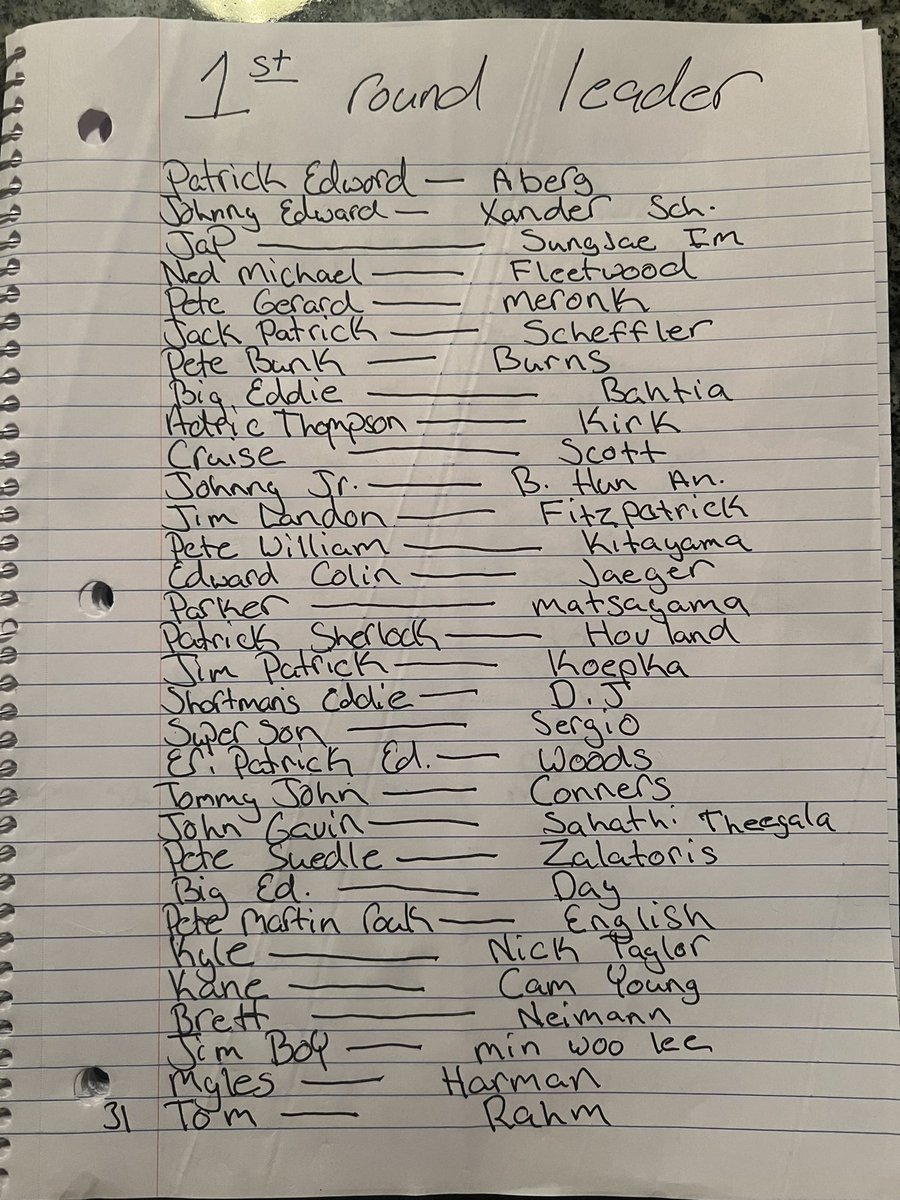 1st round leader
Patrick Edword — Aberg
Johnny Edward — Xander Sch.
Jap — Sungjae Im
Ned Michael — Fleetwood
Pete Gerard — Meronk
Jack Patrick — Scheffler
Pete Bunk — Burns
Big Eddie — Bahtia
Adric Thompson — Kirk
Cruise — Scott
Johnny Jr. — B. Hun An.
Jim Landon — Fitzpatrick
Pete William — Kitayama
Edward Colin — Jaeger
Parker — Matsayama
Patrick Sherlock — Hovland
Jim Patrick — Koepka
Shortman's Eddie — D.J
Super Son — Sergio
Eri Patrick Ed. — Woods
Tommy John — Conners
John Gavin — Sahathi Theegala
Pete Suedle — Zalatoris
Big Ed. — Day
Pete Martin — English
Kyle — Nick Taylor
Kane — Cam Young
Brett — Neimann
Jim Boy — min woo lee
Myles — Harman
31 Tom — Rahm